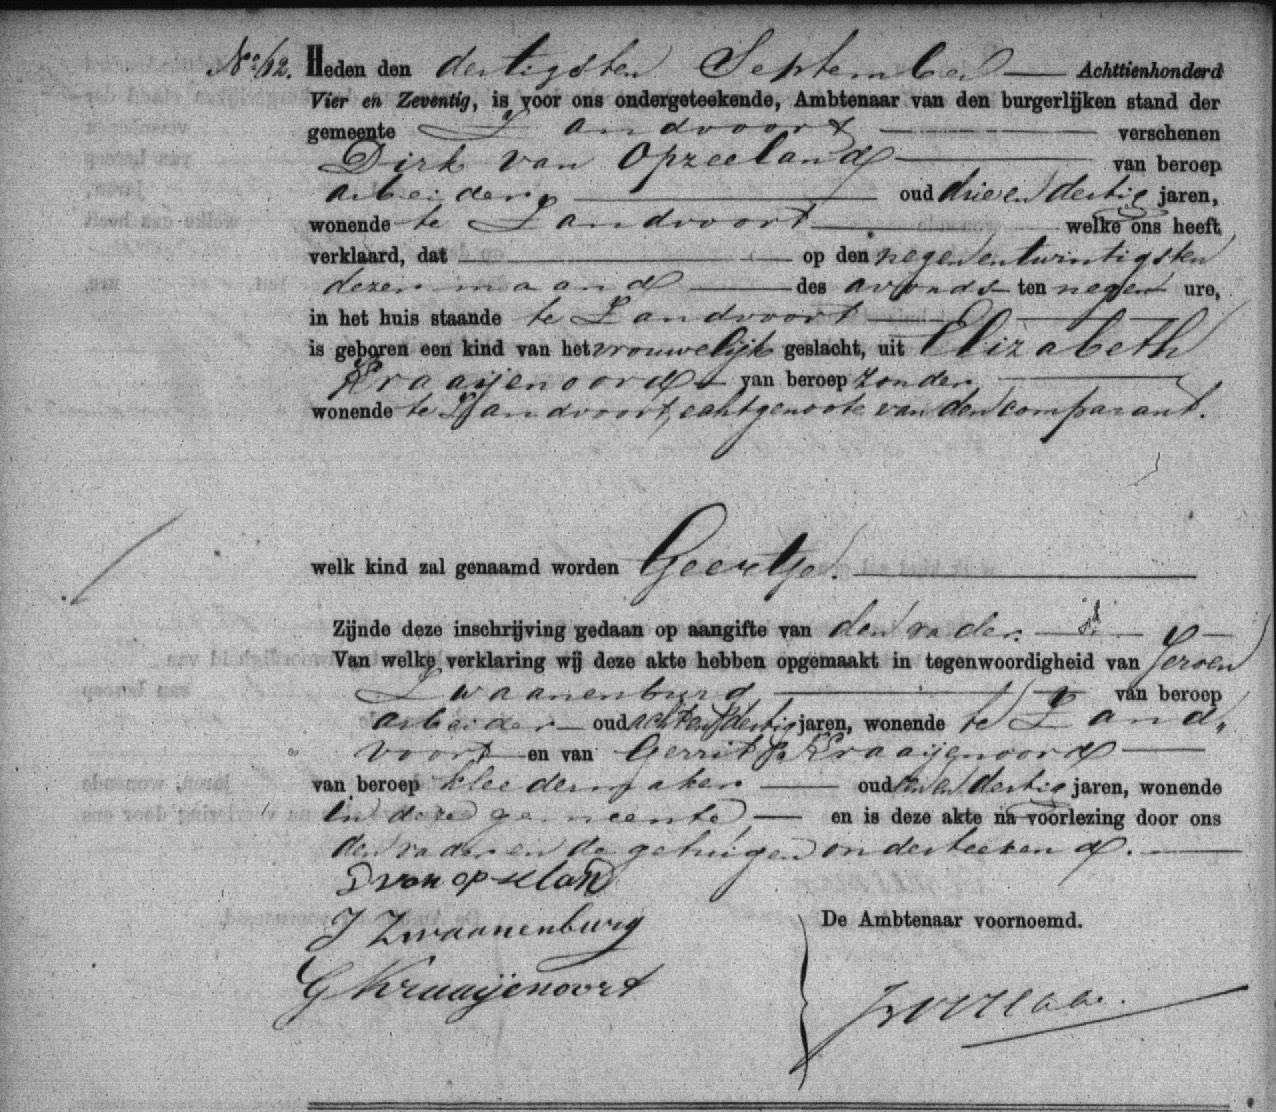 No 62. Heden den dertigsten September Achttienhonderd
Vier en Zeventig, is voor ons ondergeteekende, Ambtenaar van den burgerlijken stand der
gemeente Zandvoort verschenen
Dirk van Opzeeland van beroep
arbeider oud drie en dertig jaren,
wonende te Zandvoort welke ons heeft
verklaard, dat op den negen en twintigsten
dezer maand des avonds ten negen ure,
in het huis staande te Zandvoort
is geboren een kind van het vrouwelijk geslacht, uit Elizabeth
Kraaijenoord van beroep zonder
wonende te Zandvoort, echtgenoote van den comparant.
welk kind zal genaamd worden Geertje.
Zijnde deze inschrijving gedaan op aangifte van den vader.
Van welke verklaring wij deze akte hebben opgemaakt in tegenwoordigheid van Jeroen
Zwaanenburg van beroep
arbeider oud acht en dertig jaren, wonende te Zand„
„ voort en van Gerrit Kraaijenoord
van beroep kleedermaker oud dertig jaren, wonende
in deze gemeente, en is deze akte na voorlezing door ons
den vader en de getuigen onderteekend.
D van opselan
J Zwaanenburg
De Ambtenaar voornoemd.
G Kraaijenoort